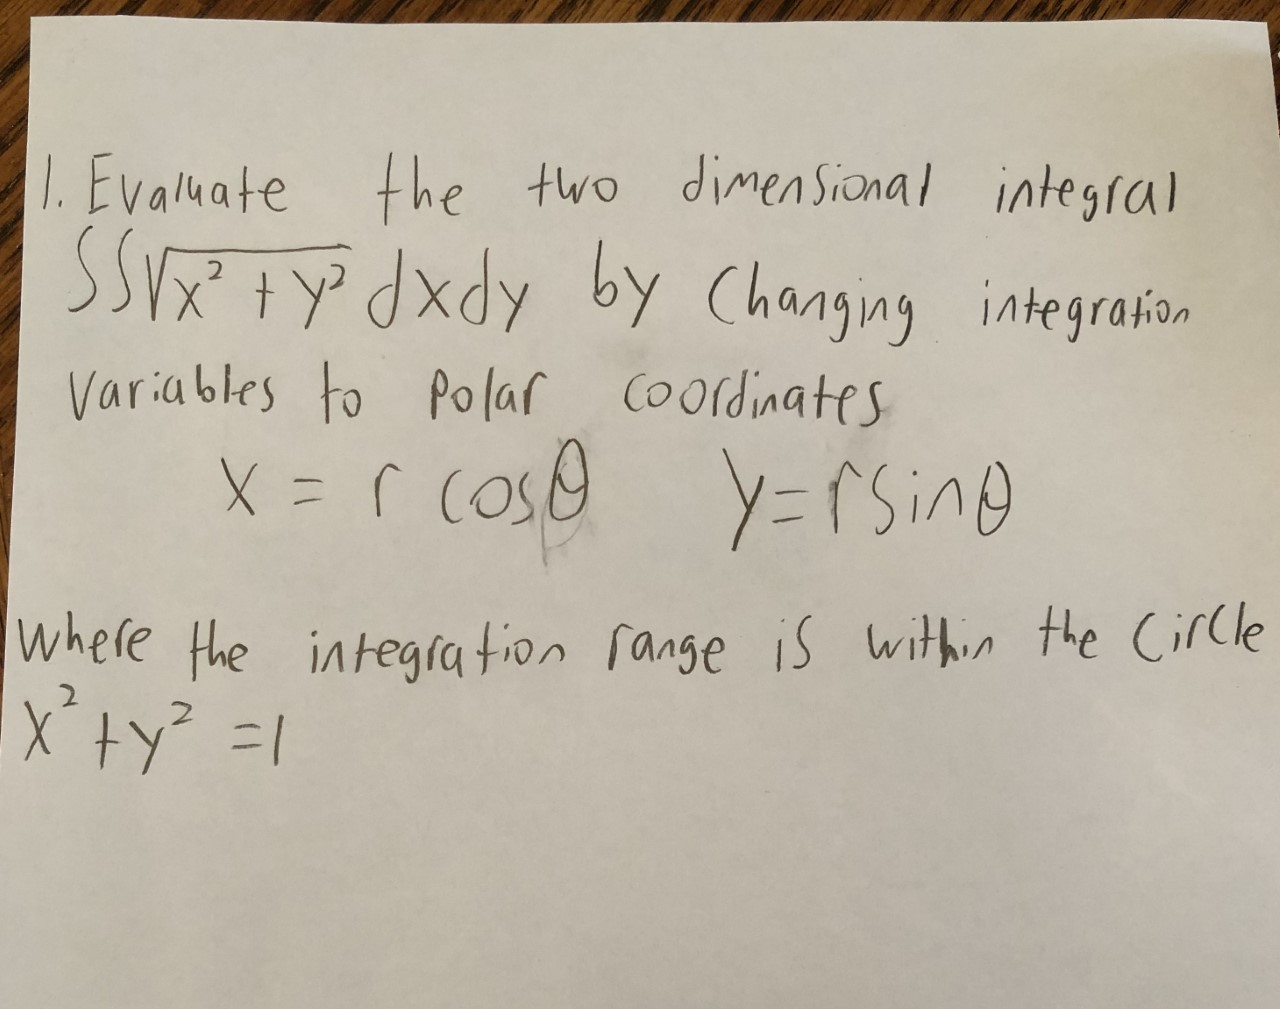 1. Evaluate the two dimensional integral
∫∫√x² + y² dxdy by Changing integration
Variables to Polar coordinates
x = r cosθ y=rsinθ
Where the integration range is within the Circle
x² + y² =1